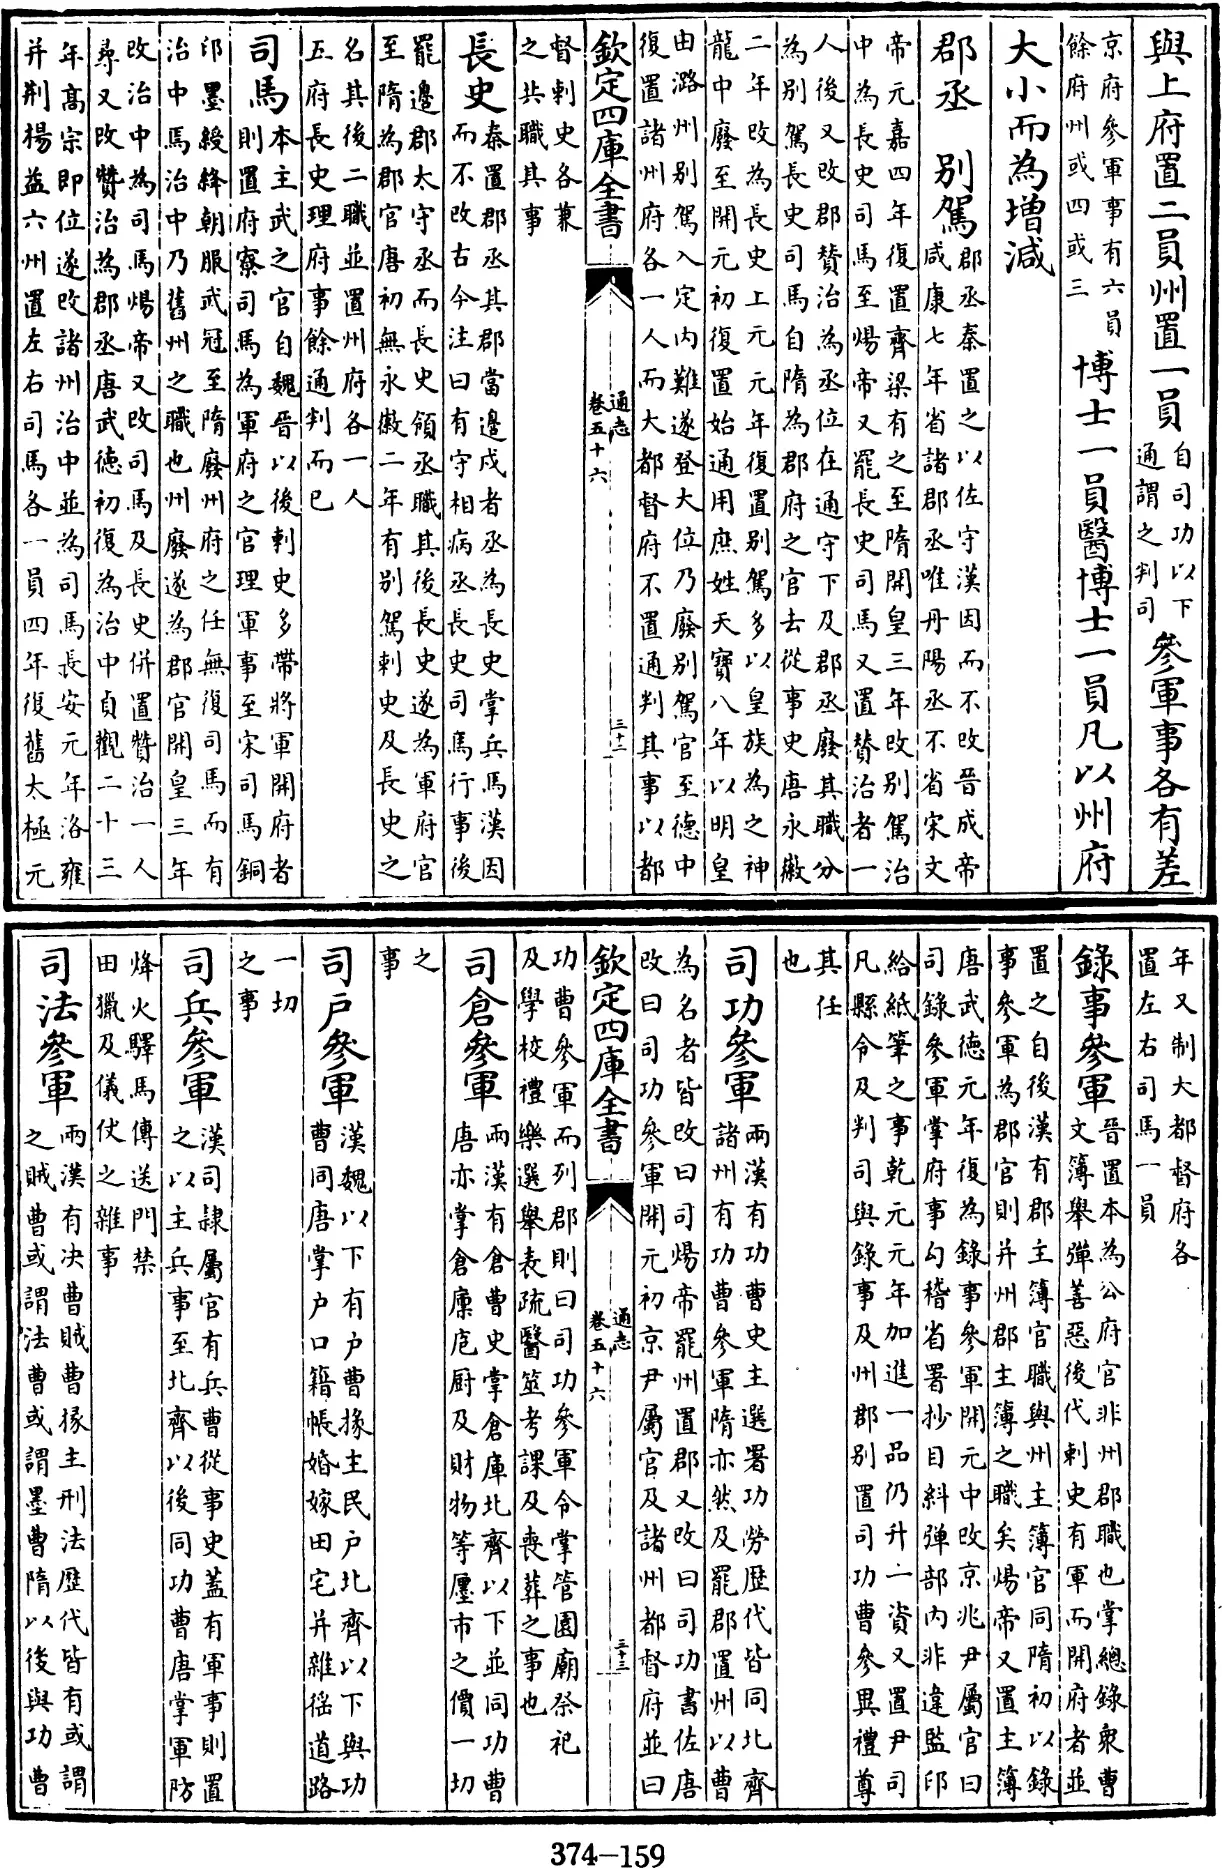 與上府置二員州置一員
自司功以下
通謂之判司
參軍事各有差
京府參軍事有六員
餘府州或四或三
博士一員醫博士一員凡以州府
大小而為增減
郡丞 别駕
郡丞秦置之以佐守漢因而不改晉成帝
咸康七年省諸郡丞唯丹陽丞不省宋文
帝元嘉四年復置齊梁有之至隋開皇三年改别駕治
中為長史司馬至煬帝又罷長史司馬又置贊治者一
人後又改郡贊治為丞位在通守下及郡丞廢其職分
為别駕長史司馬自隋為郡府之官去從事史唐永徽
二年改為長史上元元年復置别駕多以皇族為之神
龍中廢至開元初復置始通用庶姓天寶八年以明皇
由潞州别駕入定内難遂登大位乃廢别駕官至德中
復置諸州府各一人而大都督府不置通判其事以都
欽定四庫全書
通志
卷五十六
三十二
督刺史各兼
之共職其事
長史
秦置郡丞其郡當邊戍者丞為長史掌兵馬漢因
而不改古今注曰有守相病丞長史司馬行事後
罷邊郡太守丞而長史領丞職其後長史遂為軍府官
至隋為郡官唐初無永徽二年有别駕刺史及長史之
名其後二職並置州府各一人
五府長史理府事餘通判而已
司馬
本主武之官自魏晉以後刺史多帶將軍開府者
則置府寮司馬為軍府之官理軍事至宋司馬銅
印墨綬絳朝服武冠至隋廢州府之任無復司馬而有
治中馬治中乃舊州之職也州廢遂為郡官開皇三年
改治中為司馬煬帝又改司馬及長史併置贊治一人
尋又改贊治為郡丞唐武德初復為治中貞觀二十三
年髙宗即位遂改諸州治中並為司馬長安元年洛雍
并荆楊益六州置左右司馬各一員四年復舊太極元
年又制大都督府各
置左右司馬一員
錄事參軍
晉置本為公府官非州郡職也掌總錄衆曹
文簿舉彈善惡後代刺史有軍而開府者並
置之自後漢有郡主簿官職與州主簿官同隋初以錄
事參軍為郡官則并州郡主簿之職矣煬帝又置主簿
唐武德元年復為錄事參軍開元中改京兆尹屬官曰
司錄參軍掌府事勾稽省署抄目糾彈部内非違監印
給紙筆之事乾元元年加進一品仍升一資又置尹司
凡縣令及判司與錄事及州郡别置司功曹參異禮尊
其任
也
司功參軍
兩漢有功曹史主選署功勞歴代皆同北齊
諸州有功曹參軍隋亦然及罷郡置州以曹
為名者皆改曰司煬帝罷州置郡又改曰司功書佐唐
改曰司功參軍開元初京尹屬官及諸州都督府並曰
欽定四庫全書
通志
卷五十六
三十三
功曹參軍而列郡則曰司功參軍令掌管園廟祭祀
及學校禮樂選舉表疏醫筮考課及喪葬之事也
司倉參軍
兩漢有倉曹史掌倉庫北齊以下並同功曹
唐亦掌倉廩庖厨及財物等廛市之價一切
之
事
司戸參軍
漢魏以下有戸曹掾主民戸北齊以下與功
曹同唐掌戸口籍帳婚嫁田宅并雜徭道路
一切
之事
司兵參軍
漢司隷屬官有兵曹從事史蓋有軍事則置
之以主兵事至北齊以後同功曹唐掌軍防
烽火驛馬傳送門禁
田獵及儀仗之雜事
司法參軍
兩漢有決曹賊曹掾主刑法歴代皆有或謂
之賊曹或謂法曹或謂墨曹隋以後與功曹
374—159